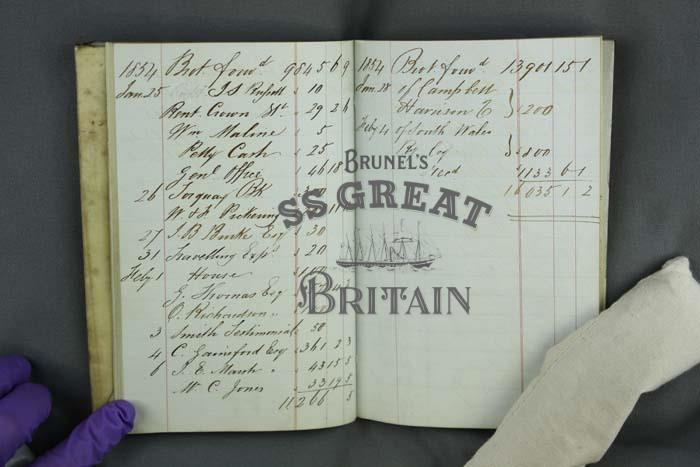 1854 Brot. forwd. 9845 6 9
Jany. 25 J S Russell " 10
Rent Crown St. " 29 2 6
Wm Malone " 5
Petty Cash " 25
Genl. Office " 46 18
26 Torquay Bk
W & J Pickering
27 I. B. Burke Esq " 30
31 Travelling Exps. 20
Feby. 1 House
G. Thomas Esq
O. Richardson "
3 Smith Testimonial 50
4 C. Gainsford Esq 361 2 3
6 J. E. Marsh " 43 15 5
W. C. Jones
1854 Brot. forwd. 13901 15 1
Jan. 28 of Campbell
Harrison &
Feby 4 of South Wales
Ry Coy
BRUNEL'S
SS GREAT
BRITAIN